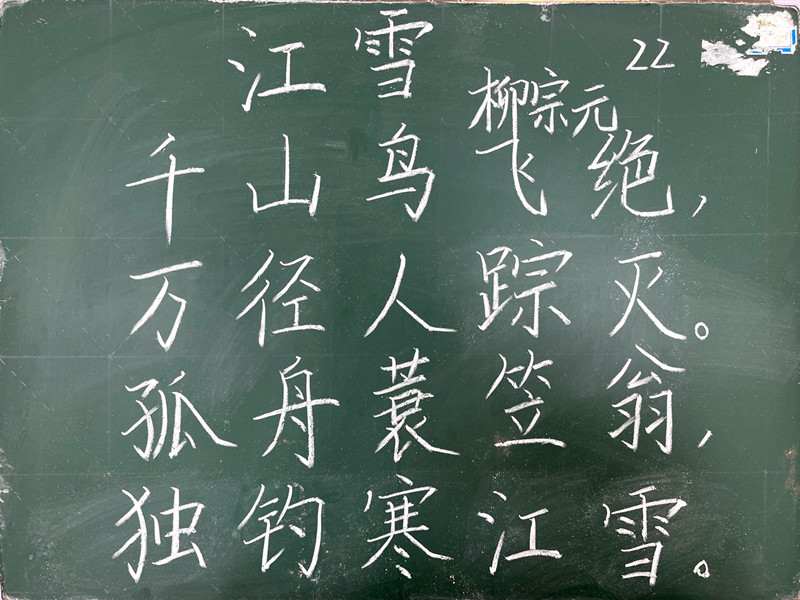 江雪
22
柳宗元
千山鸟飞绝,
万径人踪灭。
孤舟蓑笠翁,
独钓寒江雪。